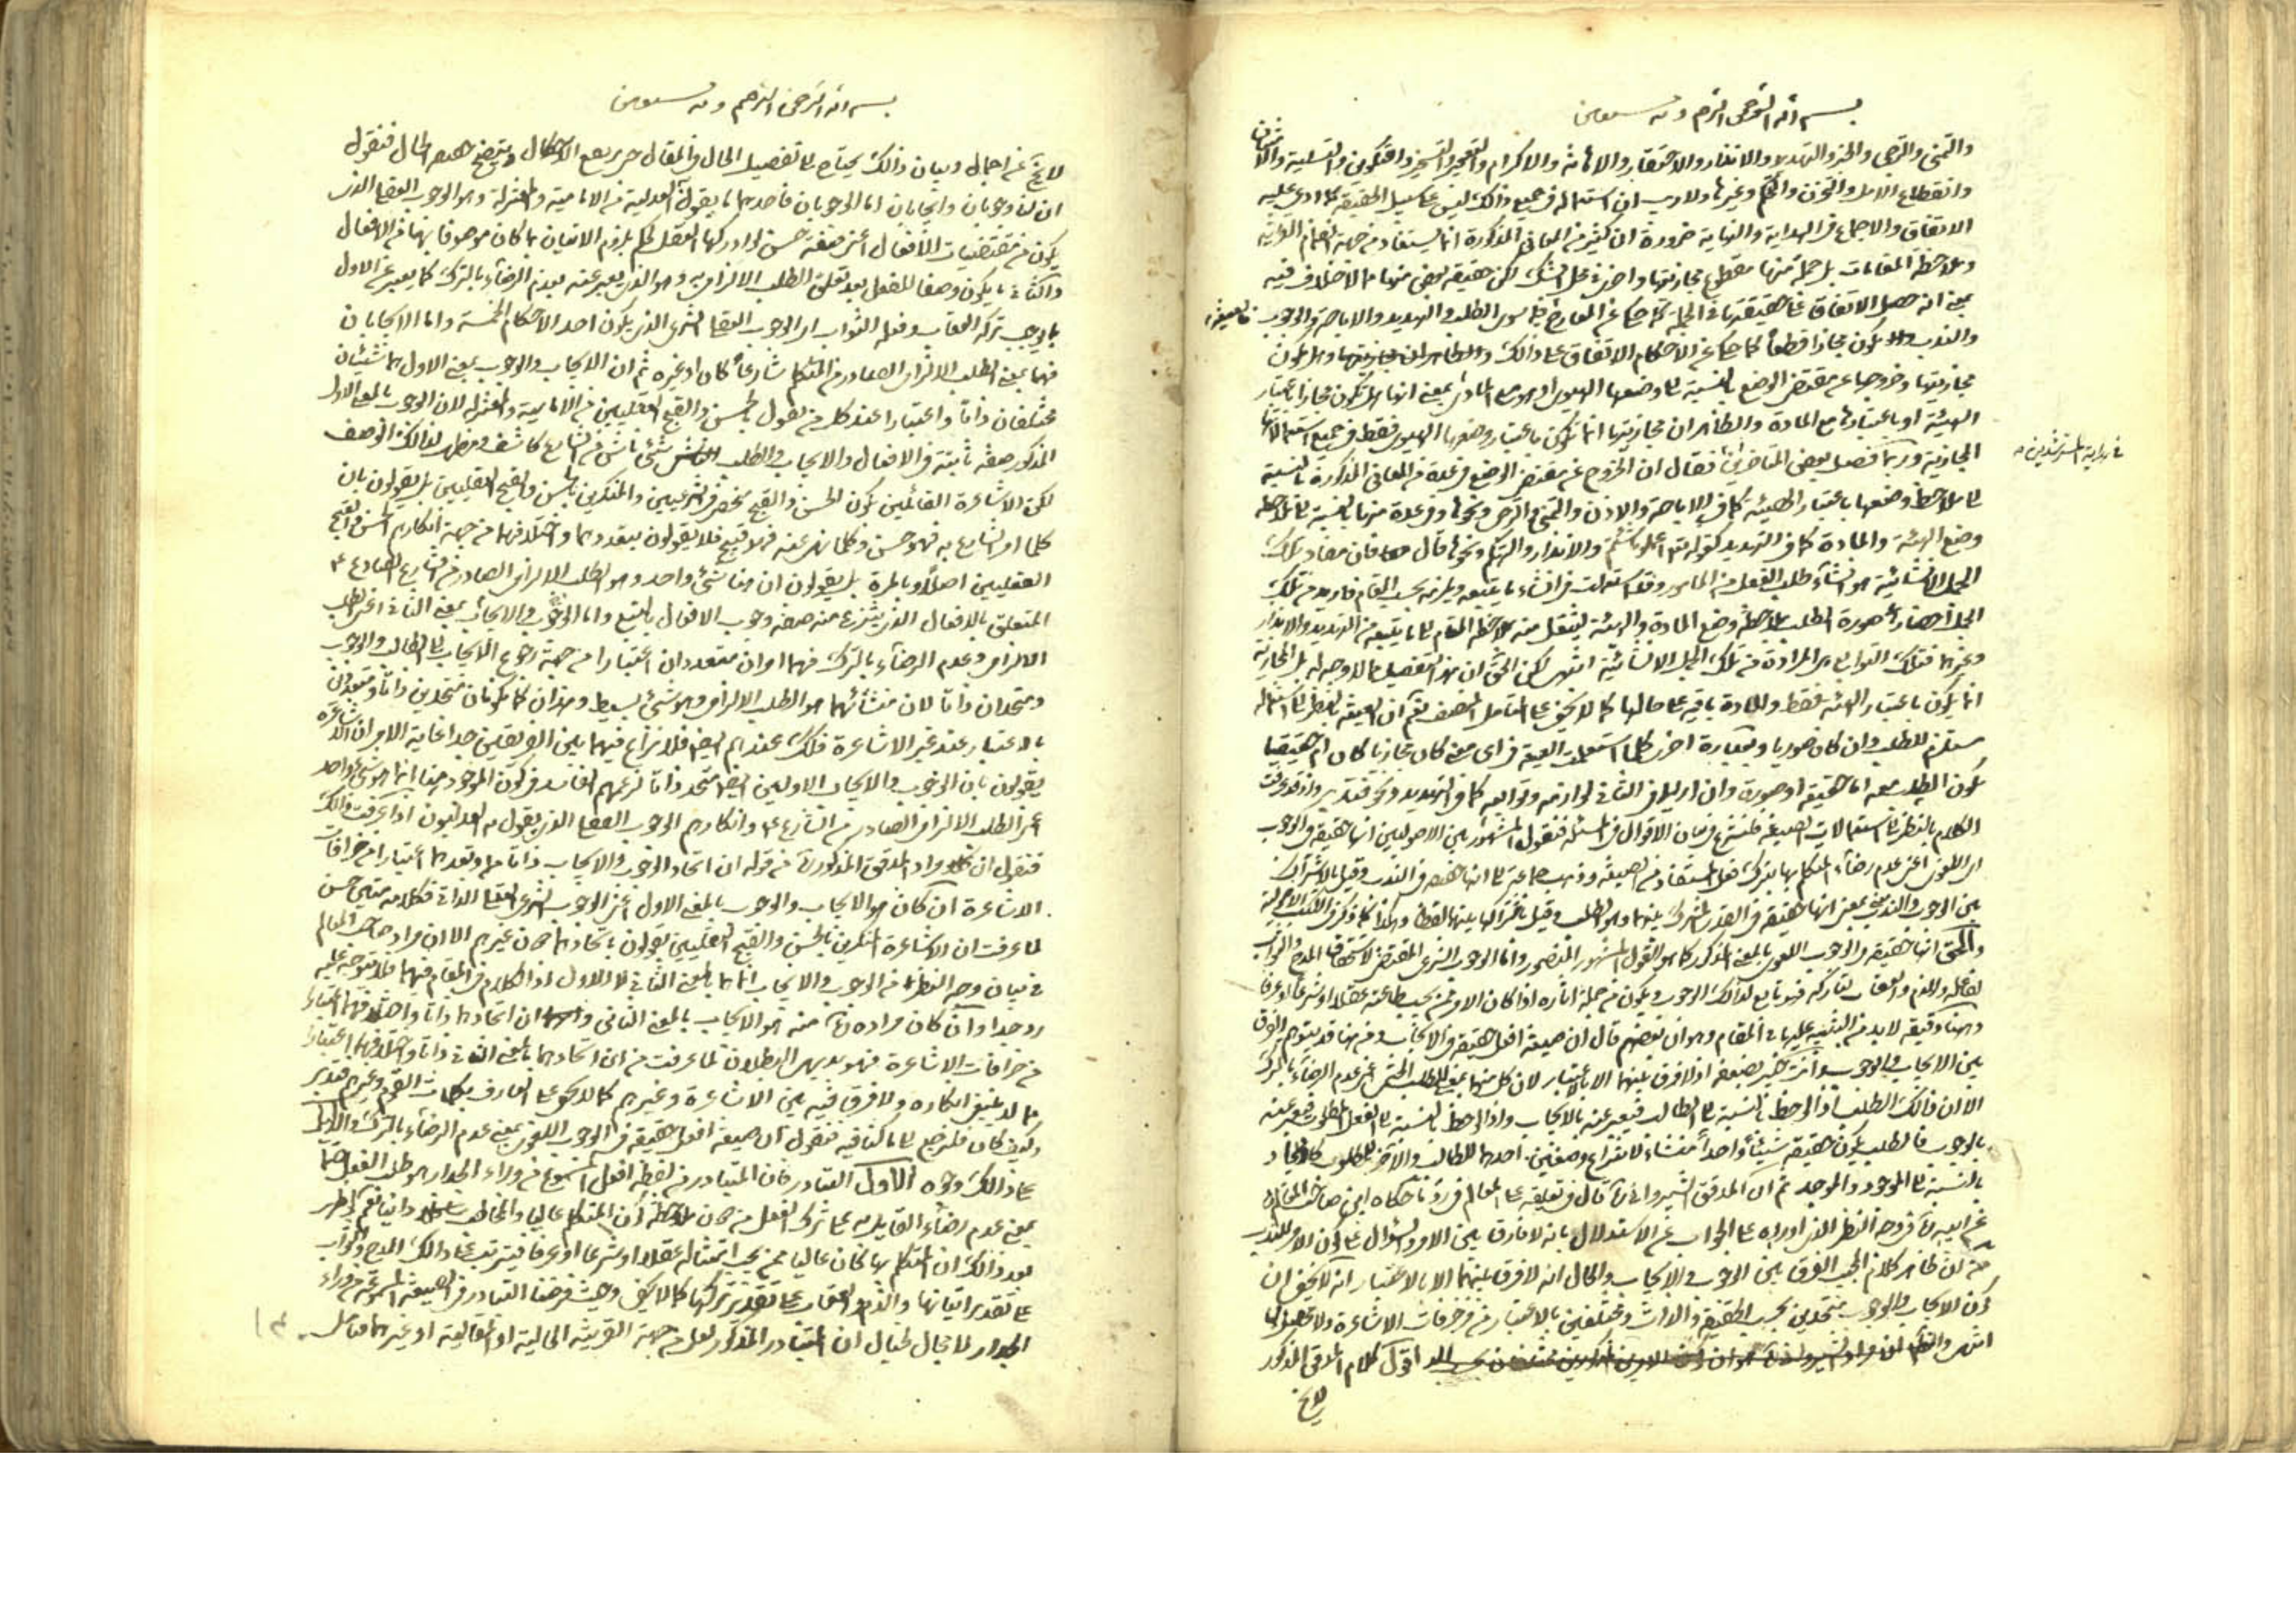 بسم الله الرحمن الرحيم وبه نستعين
والتمنى والترجى والخبر والتهديد والانذار والاحتقار والاهانة والاكرام والتعجيز والتسخير والتكوين والتسلية والامتنان
وانقطاع الامل والتحزن والتهكم وغيرها ولا ريب ان استعماله فى جميع ذلك ليس على سبيل الحقيقة كما ادعى عليه
الاتفاق والاجماع فى الهداية والنهاية ضرورة ان كثير من المعانى المذكورة انما يستفاد من جهة انضمام القرائن
وملاحظة المقامات بل جملة منها مقطوع مجازيتها واخرى محل الشك لكن حقيقة بعض منها مما لا خلاف فيه
بمعنى انه حصل الاتفاق على حقيقتها فى الجملة كما حكى عن المعارج على سوى الطلب والتهديد والاباحة والوجوب
والندب يكون مجازا قطعا كما حكى عن الاحكام الاتفاق على ذلك
مجازيتها وخروجها عن مقتضى الوضع بالنسبة الى وضعها الهيوى او المادى بمعنى انها هل تكون مجازا باعتبار
الهيئة او باعتبارها مع المادة والظاهر ان مجازيتها انما تكون باعتبار وضعها الهيوى فقط فى جميع استعمالاتها
فى هداية المسترشدين
المجازية وربما فصل بعض المتاخرين فقال ان الخروج عن مقتضى الوضع فى عدة من المعانى المذكورة بالنسبة
الى ملاحظة وضعها باعتبار الهيئة كما فى الاباحة والاذن والتمنى والترجى ونحوها وفى عدة منها بالنسبة الى ملاحظة
وضع الهيئة والمادة كما فى التهديد كقوله تعالى اعملوا ما شئتم والانذار والتهكم ونحوها قال فان مفاد تلك
الجمل الانشائية هو انشاء طلب الفعل من المامور وقد استعملت فى انشاء ما يتبعه ويلزمه بحسب المقام فاريد من تلك
الجمل احضار صورة الطلب بملاحظة وضع المادة والهيئة لينتقل منه بملاحظة المقام الى ما يتبعه من التهديد والانذار
وغيرهما فتلك التوابع هى المرادة من تلك الجمل الانشائية انتهى لكن الحق ان هذا التفصيل مما لا وجه له بل المجازية
انما يكون باعتبار الهيئة فقط والمادة باقية على حالها كما لا يخفى على المتامل المنصف نعم ان الصيغة بالنظر الى استعماله
مستلزم للطلب وان كان صوريا وبعبارة اخرى كلما استعملت الصيغة فى اى معنى كان مجازيا كان ام حقيقيا
يكون الطلب معه اما حقيقة او صورة وان اريد فى الثانى لوازمه وتوابعه كما فى التهديد ونحوه فتدبر واذ قد عرفت
الكلام بالنظر الى استعمالات الصيغة فلنشرع فى بيان الاقوال فى المسئلة فنقول المشهور بين الاصوليين انها حقيقة فى الوجوب
اى اللغوى اعنى عدم رضاء المتكلم بها بترك فعل المستفاد من الصيغة وذهب جماعة الى انها حقيقة فى الندب وقيل بالاشتراك
بين الوجوب والندب بمعنى انها حقيقة فى القدر المشترك بينهما وهو الطلب وقيل باشتراكها بينهما لفظا
والحق انها حقيقة فى الوجوب اللغوى بالمعنى المذكور كما هو القول المشهور المنصور واما الوجوب الشرعى المقتضى لاستحقاق المدح والثواب
لفاعله والذم والعقاب لتاركه فهو تابع لذلك الوجوب ويكون من جملة اثاره اذا كان الامر ممن يجب طاعته عقلا او شرعا او عرفا
وهنا دقيقة لا بد من التنبيه عليها فى المقام وهو ان بعضهم قال ان صيغة افعل حقيقة فى الايجاب ومن هنا قد يتوهم الفرق
بين الايجاب والوجوب وانت خبير بضعفه اذ لا فرق بينهما الا بالاعتبار لان كل منهما بمعنى الطلب الحتمى اعنى عدم الرضاء بالترك
الا ان ذلك الطلب اذا لوحظ بالنسبة الى الطالب فيعبر عنه بالايجاب واذا لوحظ بالنسبة الى الفعل المطلوب فيعبر عنه
بالوجوب فالطلب يكون حقيقة شيئا واحدا منشاء لانتزاع وصفين احدهما للطالب والاخر للمطلوب كالايجاد
بالنسبة الى الموجود والموجد ثم ان المدقق الشيروانى قال فى تعليقه على المعالم فى رد ما حكاه ابن صاحب المعالم
عن ابيه فى وجه النظر الذى اورده على الجواب عن الاستدلال بانه لا فارق بين الامر والسؤال على كون الامر للندب
من ان ظاهر كلام المجيب الفرق بين الوجوب والايجاب والحال انه لا فرق بينهما الا بالاعتبار انه لا يخفى ان
كون الايجاب والوجوب متحدين بحسب الحقيقة والذات ومختلفين بالاعتبار من مزخرفات الاشاعرة ولا محصل لها
انتهى اقول كلام المدقق المذكور
لا يخ
بسم الله الرحمن الرحيم وبه نستعين
لا يخ عن اجمال وبيان ذلك يحتاج الى تفصيل الحال والمقال حتى يرتفع الاشكال ويتضح حقيقة الحال فنقول
ان لنا وجوبان وايجابان اما الوجوبان فاحدهما ما يقول به العدلية من الامامية والمعتزلة وهو الوجوب العقلى الذى
يكون من مقتضيات الافعال اعنى صفة حسن لو ادركها العقل لحكم بلزوم الاتيان بما كان موصوفا بها من الافعال
والثانى ما يكون وصفا للفعل بعد تعلق الطلب الالزامى به وهو الذى يعبر عنه بعدم الرضاء بالترك كما يعبر عن الاول
بما يوجب تركه العقاب وفعله الثواب اى الوجوب العقلى الشرعى الذى يكون احد الاحكام الخمسة واما الايجابان
فهما بمعنى الطلب الالزامى الصادر من المتكلم شارعا كان او غيره ثم ان الايجاب والوجوب بمعنى الاول هما شيئان
مختلفان ذاتا واعتبارا عند كل من يقول بالحسن والقبح العقليين من الامامية والمعتزلة لان الوجوب بالمعنى الاول
المذكور صفة ثابتة فى الافعال والايجاب والطلب شئ ناش من الشارع كاشف ومظهر لذلك الوصف
لكن الاشاعرة القائلين بكون الحسن والقبح منحصر فى الشرعيين والمنكرين بالحسن والقبح العقليين بل يقولون بان
كلما امر الشارع به فهو حسن وكلما نهى عنه فهو قبيح فلا يقولون بتعددهما واختلافهما من جهة انكارهم الحسن والقبح
العقليين اصلا وبالمرة بل يقولون ان هنا شئ واحد وهو الطلب الالزامى الصادر من الشارع
المتعلق بالافعال الذى ينتزع منه صفة وجوب الافعال بالتبع واما الوجوب والايجاب بمعنى الثانى اعنى الطلب
الالزامى وعدم الرضاء بالترك فهما وان متعددان اعتبارا من جهة رجوع الايجاب الى الطالب والوجوب
ومتحدان ذاتا لان منشائهما هو الطلب الالزامى وهو شئ بسيط وهذان كما يكونان متحدين ذاتا ومتعددين
بالاعتبار عند غير الاشاعرة فكذلك عندهم ايضا فلا نزاع فيهما بين الفريقين جدا غاية الامر ان الاشاعرة
يقولون بان الوجوب والايجاب الاوليين ايضا متحد ذاتا لزعمهم الفاسد فى كون الموجود هنا انما هو شئ واحد
اعنى الطلب الالزامى الصادر من الشارع وانكارهم الوجوب العقلى الذى يقول به العدليون اذا عرفت ذلك
فنقول ان مراد المدقق المذكور من قوله ان اتحاد الوجوب والايجاب ذاتا وتعددهما اعتبارا من خرافات
الاشاعرة ان كان هو الايجاب والوجوب بالمعنى الاول اعنى الوجوب الشرعى العقلى الذاتى فكلامه متين حسن
لما عرفت ان الاشاعرة المنكرين بالحسن والقبح العقليين يقولون باتحادهما دون غيرهم الا ان مراد صاحب المعالم
فى بيان وجه النظر من الوجوب والايجاب انما هما بالمعنى الثانى لا الاول اذ الكلام فى المقام فيهما فلا يتوجه عليه
رد جدا وان كان مراده منه هو الايجاب بالمعنى الثانى وان اتحادهما ذاتا واختلافهما اعتبارا
من خرافات الاشاعرة فهو بديهى البطلان لما عرفت من ان اتحادهما بالمعنى الثانى ذاتا واختلافهما اعتبارا
مما لا ينبغى انكاره ولا فرق فيه بين الاشاعرة وغيرهم كما لا يخفى على العارف بكلمات القوم وغيرهم فتدبر
وكيف كان فلنرجع الى ما كنا فيه فنقول ان صيغة افعل حقيقة فى الوجوب اللغوى بمعنى عدم الرضاء بالترك والدليل
على ذلك وجوه الاول التبادر فان المتبادر من لفظة افعل المسموع من وراء الجدار هو طلب الفعل حتما
بمعنى عدم رضاء القائل به على ترك الفعل من دون ملاحظة كون المتكلم عاليا والمخاطب
بعد ذلك ان المتكلم بها كان عاليا ممن يجب امتثاله عقلا او شرعا او عرفا فيترتب على ذلك المدح والثواب
على تقدير اتيانها والذم والعقاب على تقدير تركها كما لا يخفى وحيث فرضنا التبادر فى الصيغة المسموعة من وراء
الجدار لا مجال لخيال ان التبادر المذكور لعله من جهة القرينة الحالية او المقالية او غيرهما فتامل